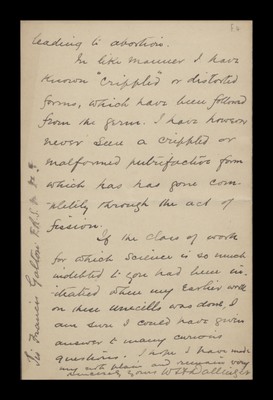 leading to abortion.
In like manner I have
known "crippled" or distorted
forms, which have been followed
from the germ. I have however
never seen a crippled or
malformed putrifactive form
which has has gone com-
pletely through the act of
fission.
If the class of work
for which science is so much
indebted to you had been in-
itiated when my earlier work
on these unicells was done, I
am sure I could have given
answer to many curious
questions. I hope I have made
my note plain and remain very
sincerely yours W H Dallinger
Sir Francis Galton F.R.S.